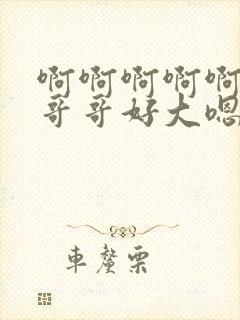 啊啊啊啊啊
哥哥好大嗯
车厘栗